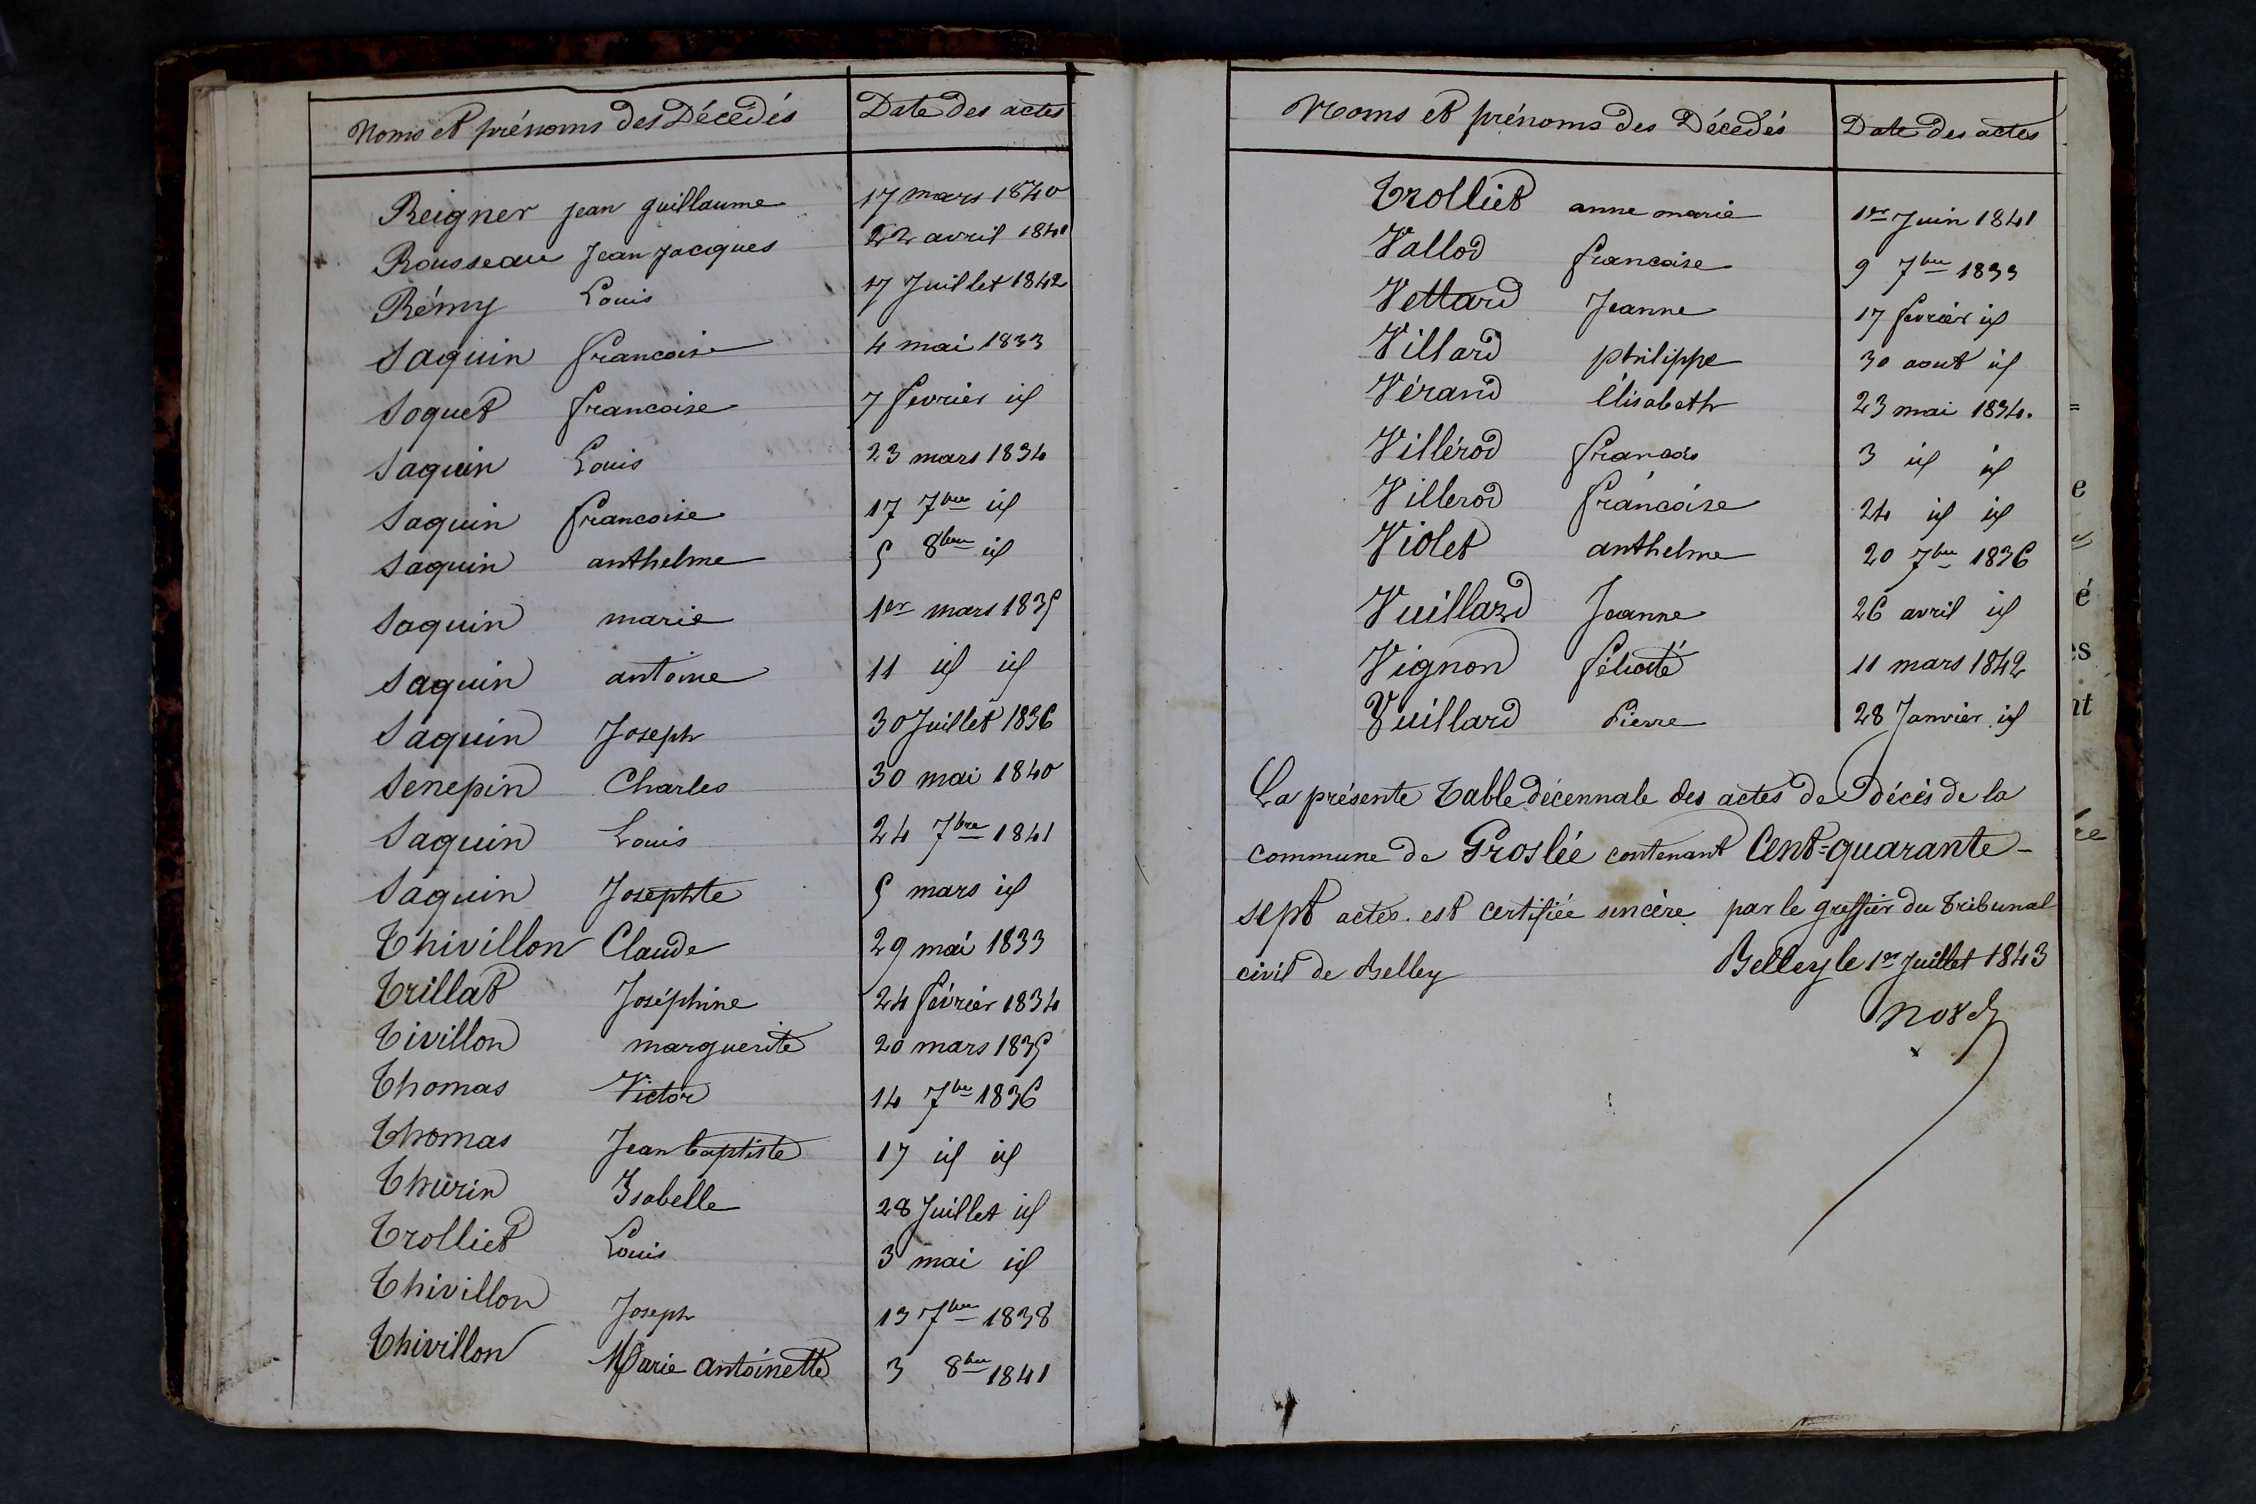 Noms et prénoms des Décédés Date des actes
Reigner jean guillaume 17 mars 1840
Rousseau Jean jacques 22 avril 1841
Rémy Louis 17 Juillet 1842
Saquin francoise 4 mai 1833
Soquet francoise 7 fevrier id
Saquin Louis 23 mars 1834
Saquin francoise 17 7bre id
Saquin anthelme 5 8bre id
Saquin marie 1er mars 1835
Saquin antoine 11 id id
Saquin Joseph 30 Juillet 1836
Senepin Charles 30 mai 1840
Saquin Louis 24 7bre 1841
Saquin Josephte 5 mars id
Thivillon Claude 29 mai 1833
Trillat Joséphine 24 février 1834
Tivillon marguerite 20 mars 1835
Thomas Victor 14 7bre 1836
Thomas Jean baptiste 17 id id
Thurin Isabelle 28 Juillet id
Trolliet Louis 3 mai id
Thivillon Joseph 13 7bre 1838
Thivillon Marie antoinette 3 8bre 1841
Noms et prénoms des Décédés Date des actes
Trolliet anne marie 1er Juin 1841
Vallod francoise 9 7bre 1833
Vettard Jeanne 17 fevrier id
Villard philippe 30 aout id
Vérand élisabeth 23 mai 1834.
Villérod francois 3 id id
Villerod francoise 24 id id
Violet anthelme 20 7bre 1836
Vuillard Jeanne 26 avril id
Vignon félicité 11 mars 1842
Vuillard Pierre 28 Janvier id
La présente Table décennale des actes de Décès de la
commune de Groslée contenant Cent=quarante-
sept actes est certifiée sincère par le greffier du Tribunal
civil de Belley Belley le 1er Juillet 1843